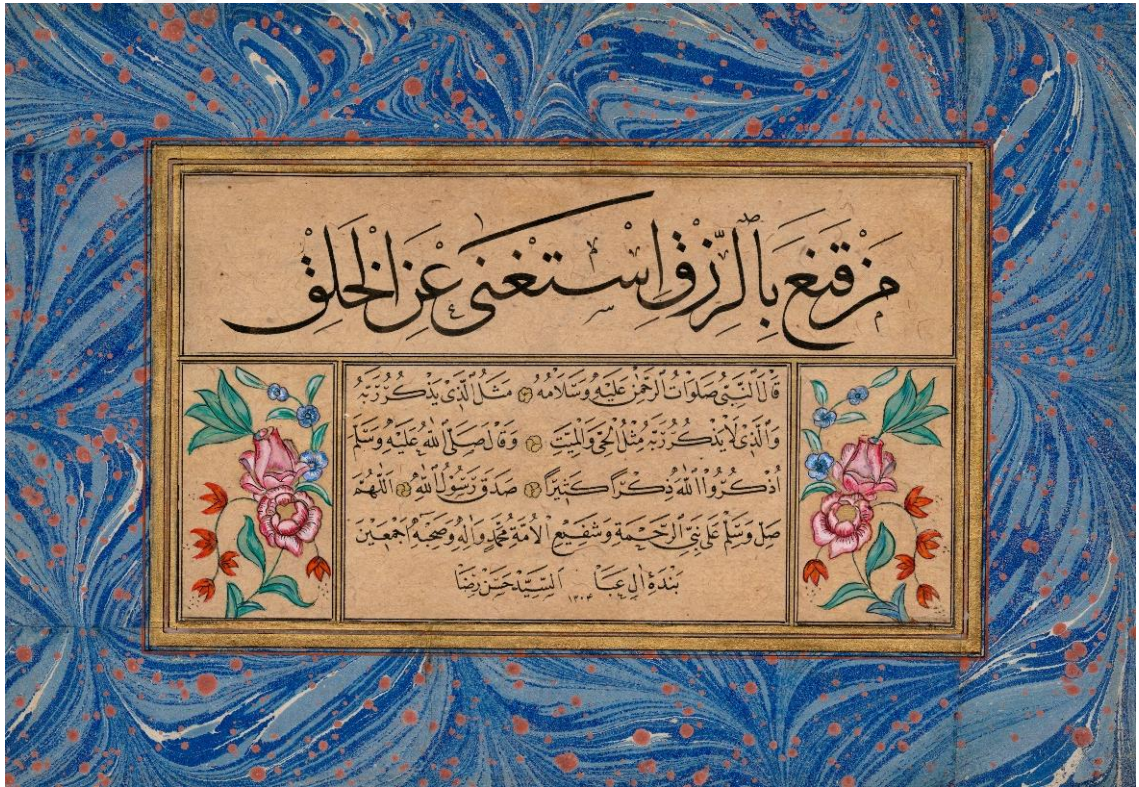 مَنْ قَنَعَ بِالرِّزْقِ اِسْتَغْنٰى عَنِ الْخَلْقِ
قَالَ النَّبِيُّ صَلَوَاتُ الرَّحْمٰنِ عَلَيْهِ وَسَلَامُهُ مَثَلُ الَّذِي يَذْكُرُ رَبَّهُ
وَالَّذِي لَا يَذْكُرُ رَبَّهُ مَثَلُ الْحَيِّ وَالْمَيِّتِ وَقَالَ صَلَّى اللّٰهُ عَلَيْهِ وَسَلَّمَ
اُذْكُرُوا اللّٰهَ ذِكْرًا كَثِيرًا صَدَقَ رَسُولُ اللّٰهِ اَللّٰهُمَّ
صَلِّ وَسَلِّمْ عَلٰى نَبِيِّ الرَّحْمَةِ وَشَفِيعِ الْاُمَّةِ مُحَمَّدٍ وَاٰلِهِ وَصَحْبِهِ اَجْمَعِينَ
بَنْدَهٔ اٰلِ عَبَا اَلسَّيِّدْ حَسَنْ رِضَا ١٣٠٤